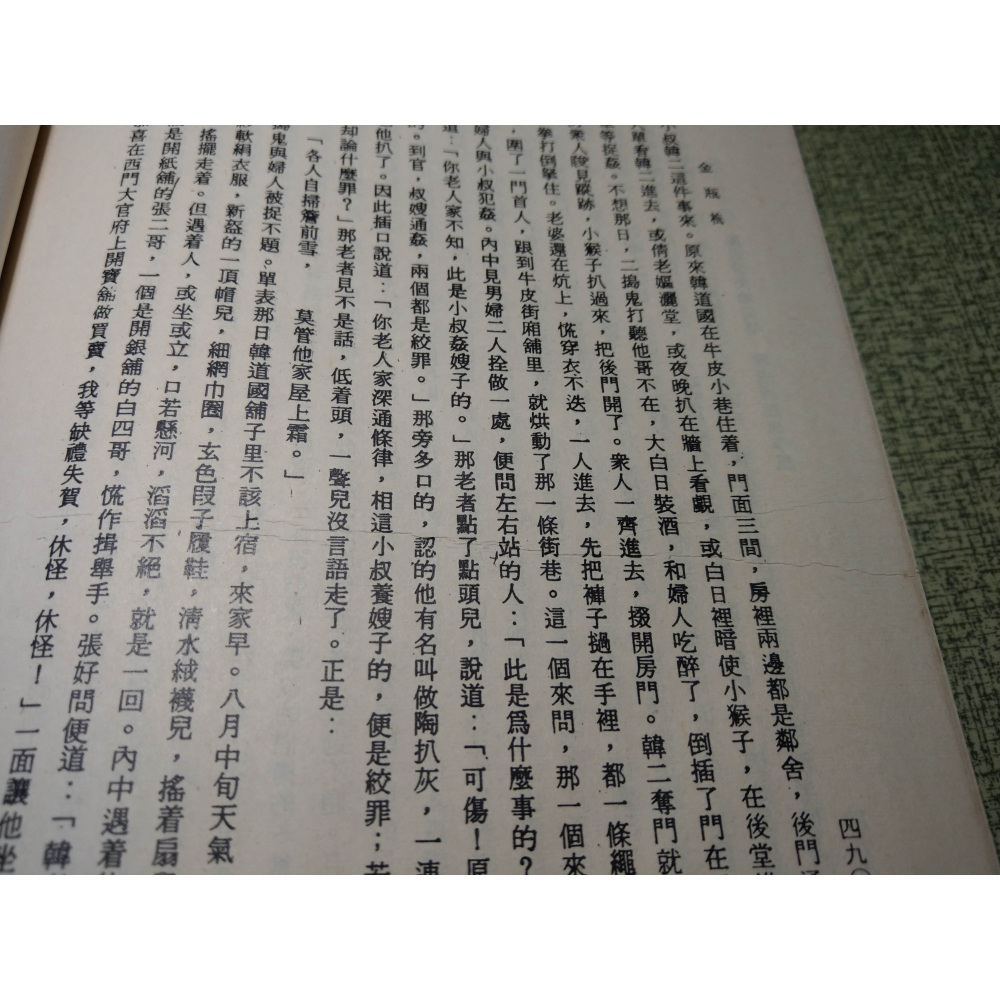 金瓶梅
四九〇
小叔韓二這件事來。原來韓道國在牛皮小巷住着，門面三間，房裡兩邊都是鄰舍，後門
單看韓二進去，或倩老嫗灑堂，或夜晚扒在牆上看覷，或白日裡暗使小猴子，在後堂
等捉姦。不想那日，二搗鬼打聽他哥不在，大白日裝酒，和婦人吃醉了，倒插了門在
衆人睃見蹤跡，小猴子扒過來，把後門開了。衆人一齊進去，掇開房門。韓二奪門就
拳打倒拏住。老婆還在炕上，慌穿衣不迭，一人進去，先把褲子撾在手裡，都一條繩
，圍了一門首人，跟到牛皮街廂舖里，就烘動了那一條街巷。這一個來問，那一個來
婦人與小叔犯姦。內中見男婦二人拴做一處，便問左右站的人：「此是爲什麼事的？
道：「你老人家不知，此是小叔姦嫂子的。」那老者點了點頭兒，說道：「可傷！原
的。到官，叔嫂通姦，兩個都是絞罪。」那旁多口的，認的他有名叫做陶扒灰，一連
他扒了。因此插口說道：「你老人家深通條律，相這小叔養嫂子的，便是絞罪；若
却論什麼罪？」那老者見不是話，低着頭，一聲兒沒言語走了。正是：
「各人自掃簷前雪，　莫管他家屋上霜。」
搗鬼與婦人被捉不題。單表那日韓道國舖子里不該上宿，來家早。八月中旬天氣
軟絹衣服，新盔的一頂帽兒，細網巾圈，玄色段子履鞋，淸水絨襪兒，搖着扇
搖擺走着。但遇着人，或坐或立，口若懸河，滔滔不絕，就是一回。內中遇着
是開紙舖的張二哥，一個是開銀舖的白四哥，慌作揖舉手。張好問便道：「韓
恭喜在西門大官府上開寶舖做買賣，我等缺禮失賀，休怪，休怪！」一面讓他坐